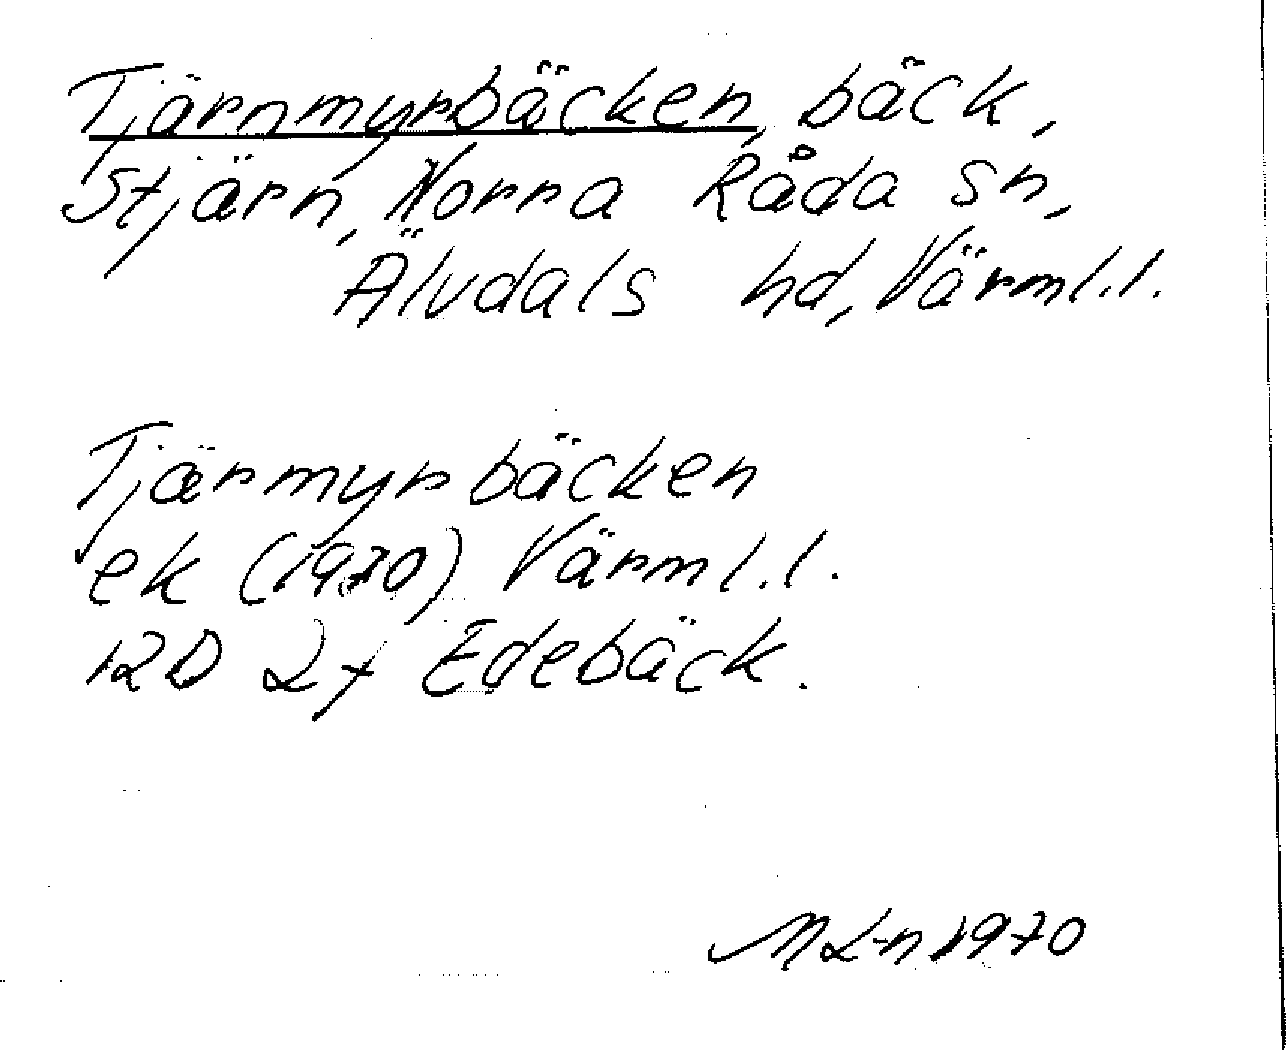 Tjärnmyrbäcken, bäck,
Stjärn, Norra Råda sn,
Älvdals hd, Värml.l.
Tjärmyrbäcken
ek (1970) Värml.l.
12D 2f Edebäck.
ML-n 1970